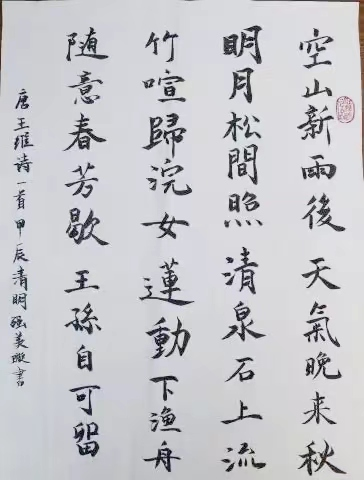 空山新雨後天氣晚来秋
明月松間照清泉石上流
竹喧歸浣女蓮動下渔舟
随意春芳歇王孫自可留
唐王维诗一首甲辰清明强美璇書